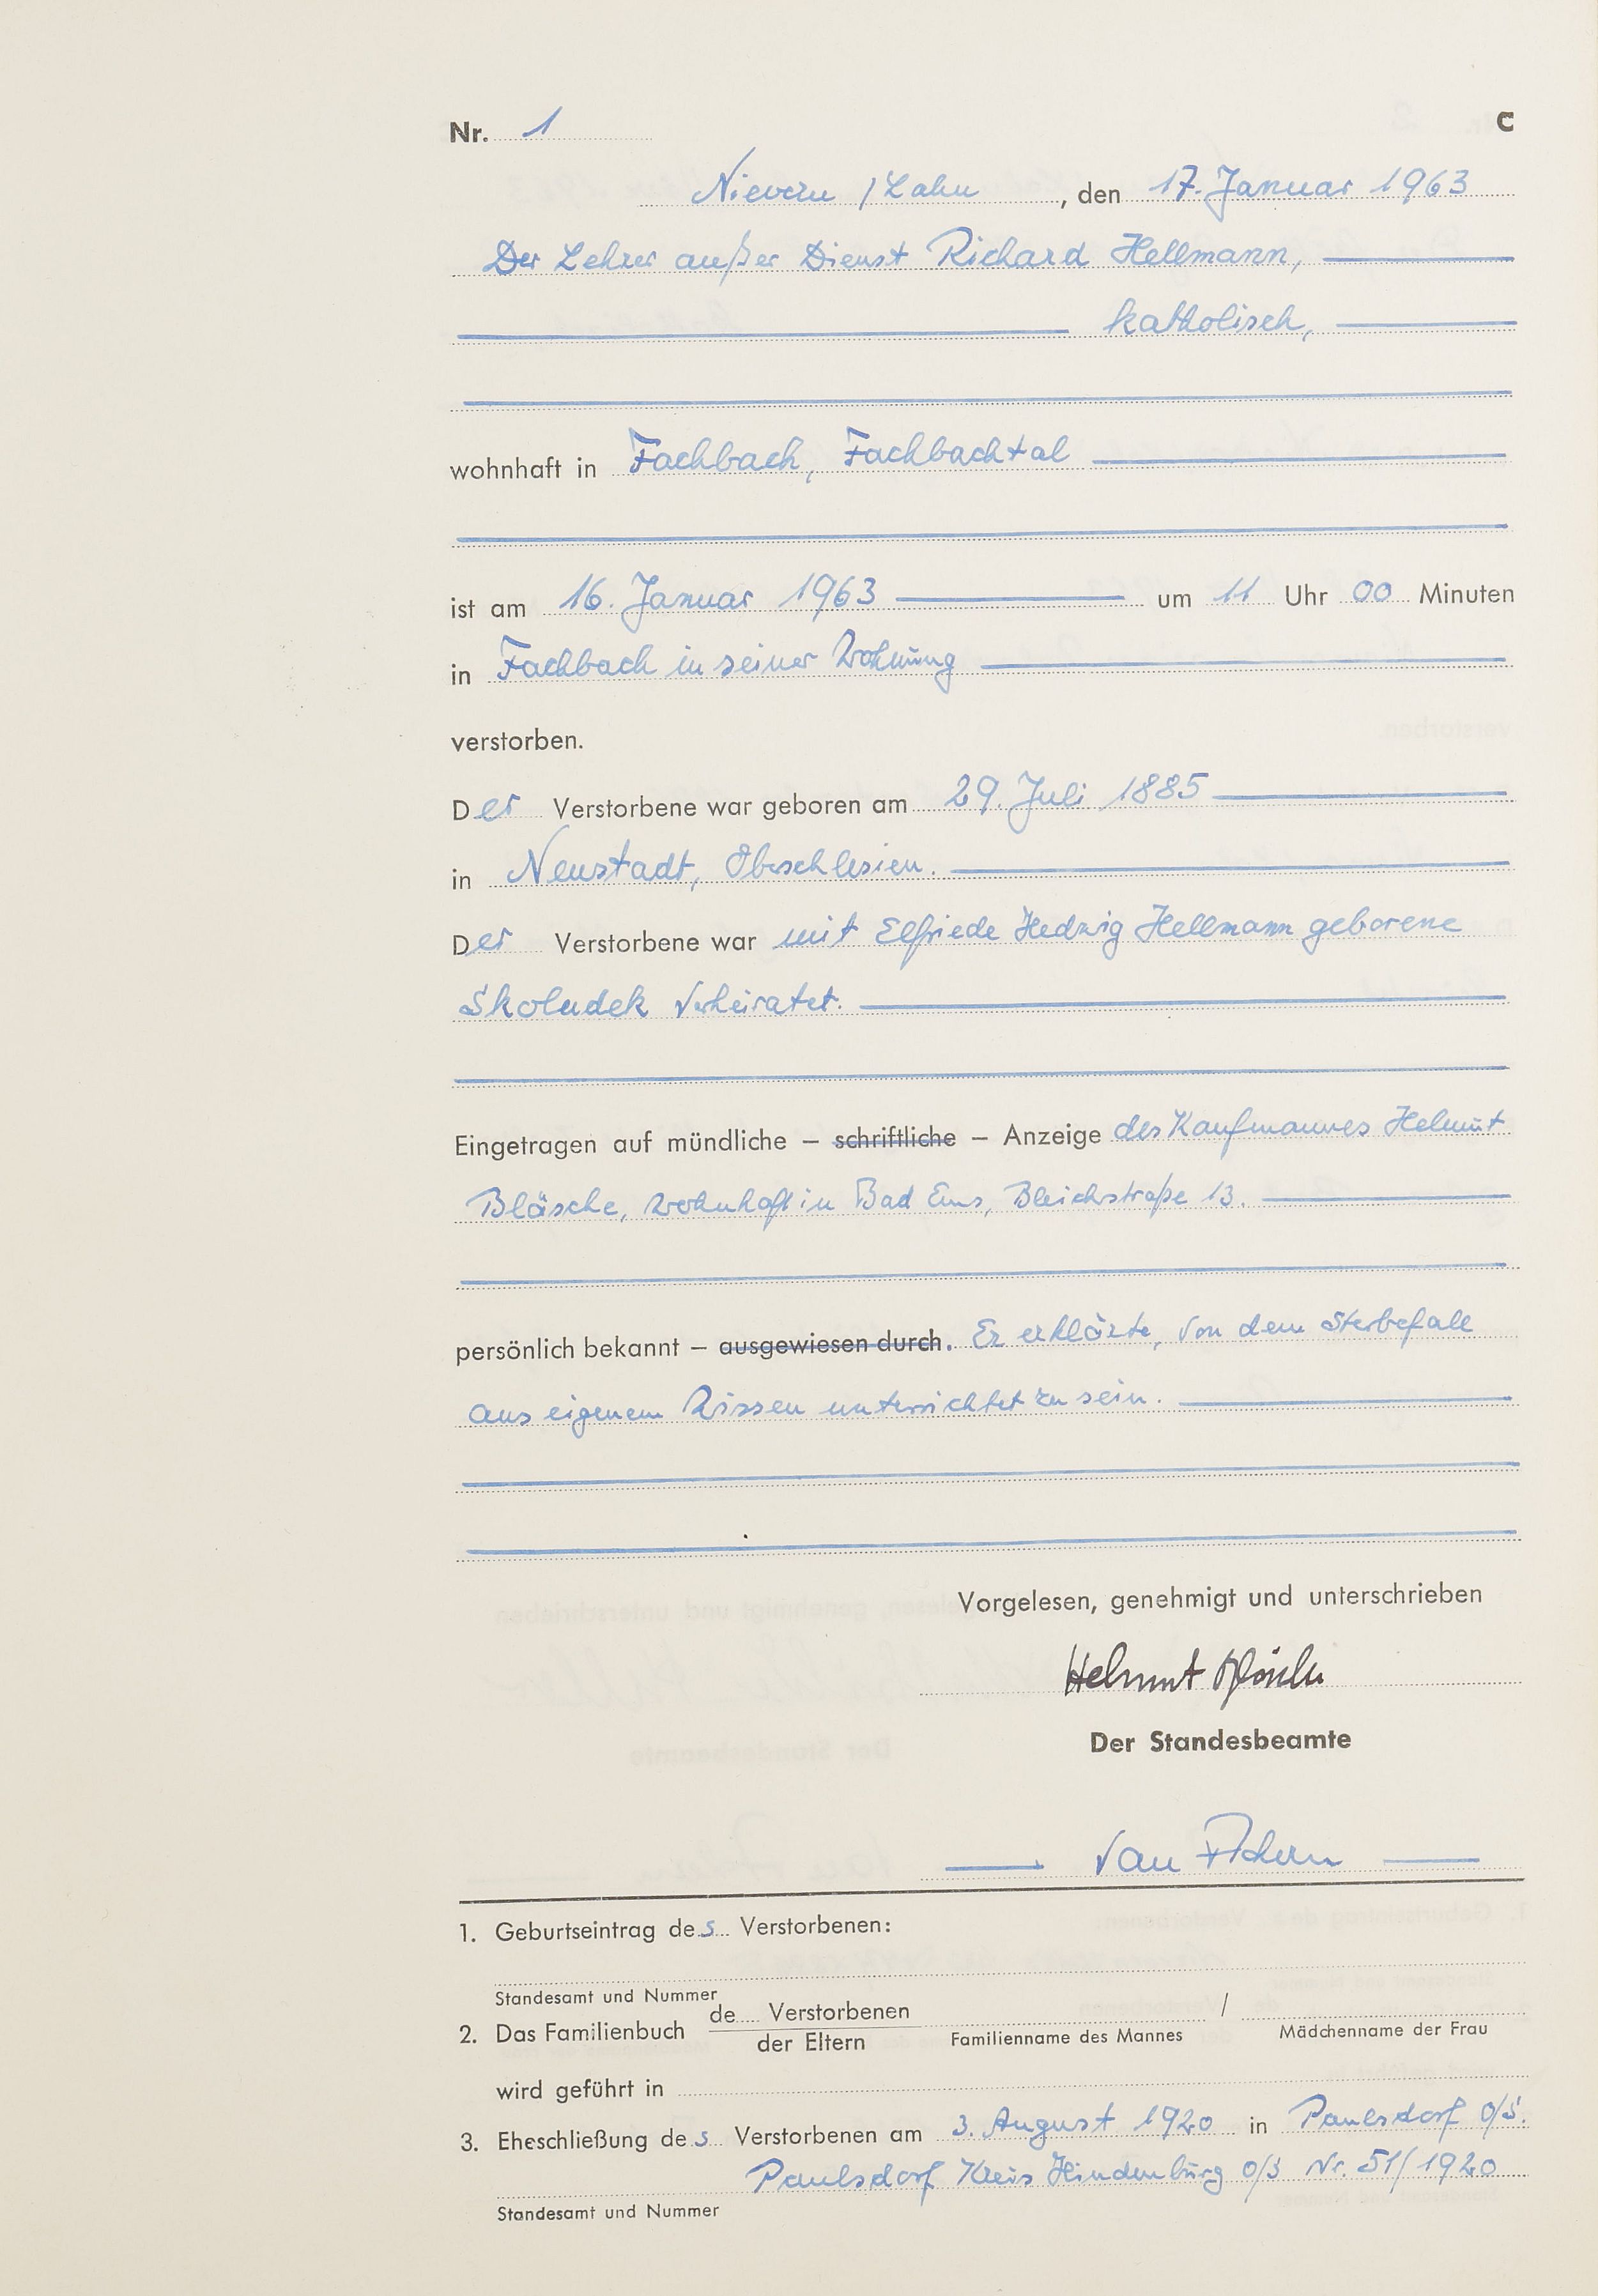 Nr. 1 C
Nievern / Lahn, den 17. Januar 1963
Der Lehrer außer Dienst Richard Hellmann,
katholisch,
wohnhaft in Fachbach, Fachbachtal
ist am 16. Januar 1963 um 11 Uhr 00 Minuten
in Fachbach in seiner Wohnung
verstorben.
Der Verstorbene war geboren am 29. Juli 1885
in Neustadt, Oberschlesien.
Der Verstorbene war mit Elfriede Hedwig Hellmann geborene
Skoludek verheiratet.
Eingetragen auf mündliche – schriftliche – Anzeige des Kaufmannes Helmut
Bläsche, wohnhaft in Bad Ems, Bleichstraße 13.
persönlich bekannt – ausgewiesen durch. Er erklärte, von dem Sterbefall
aus eigenem Wissen unterrichtet zu sein.
Vorgelesen, genehmigt und unterschrieben
Helmut Bläsche
Der Standesbeamte
van
1. Geburtseintrag des Verstorbenen:
Standesamt und Nummer
2. Das Familienbuch de Verstorbenen /
der Eltern Familienname des Mannes Mädchenname der Frau
wird geführt in
3. Eheschließung des Verstorbenen am 3. August 1920 in Paulsdorf O/S.
Paulsdorf Kreis Hindenburg O/S Nr. 51/1920
Standesamt und Nummer